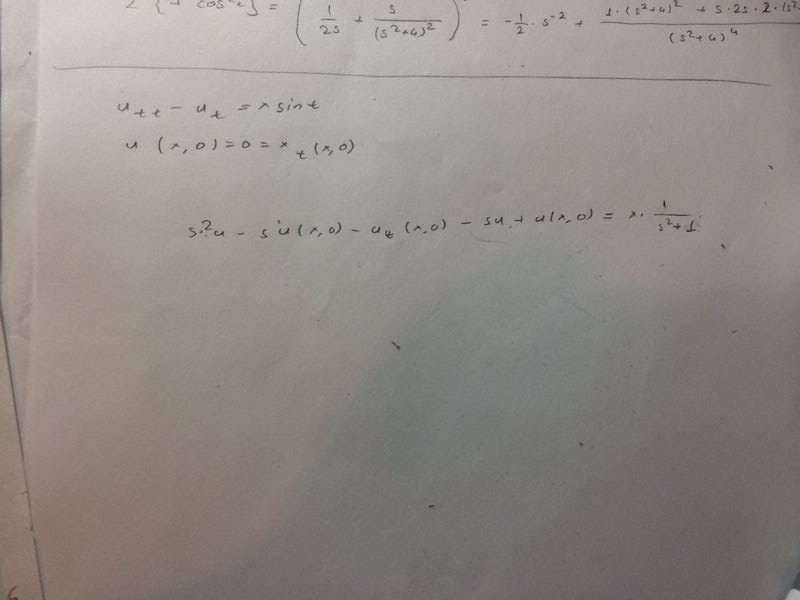 cos² t} = ( 1/2s + s/(s²+4)² ) = -1/2 · s⁻² + 1·(s²+4)² + s·2s·2·(s² / (s²+4)⁴
u_tt - u_t = x sin t
u (x,0) = 0 = x_t (x,0)
s²u - s u(x,0) - u_t (x,0) - su + u(x,0) = x · 1/(s²+1)